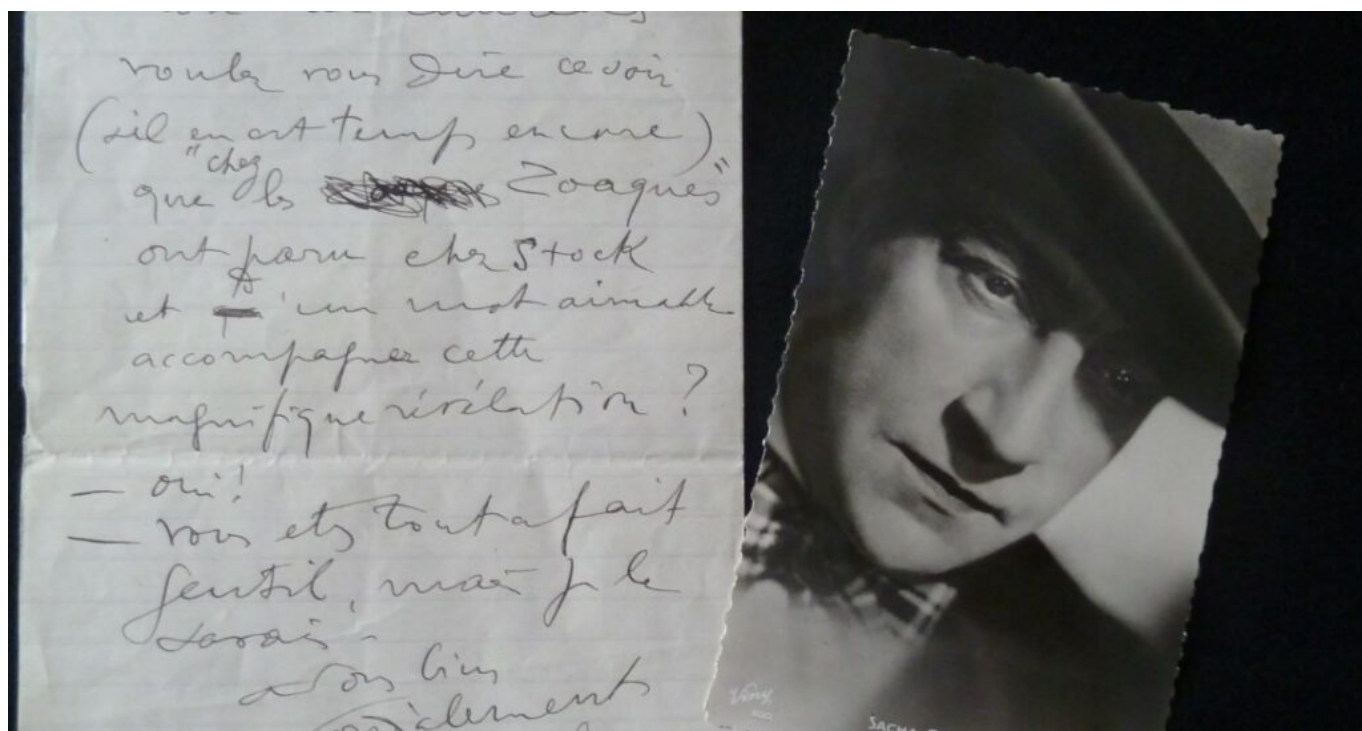 voulez vous dire ce soir
(sil en est temps encore)
que "chez les Zoaques"
ont paru chez Stock
et qu'un mot aimable
accompagner cette
magnifique révélation ?
— oui !
— vous etes tout a fait
gentil, mais je le
savais -
Vous bien
cordialement
Viny
SACHA